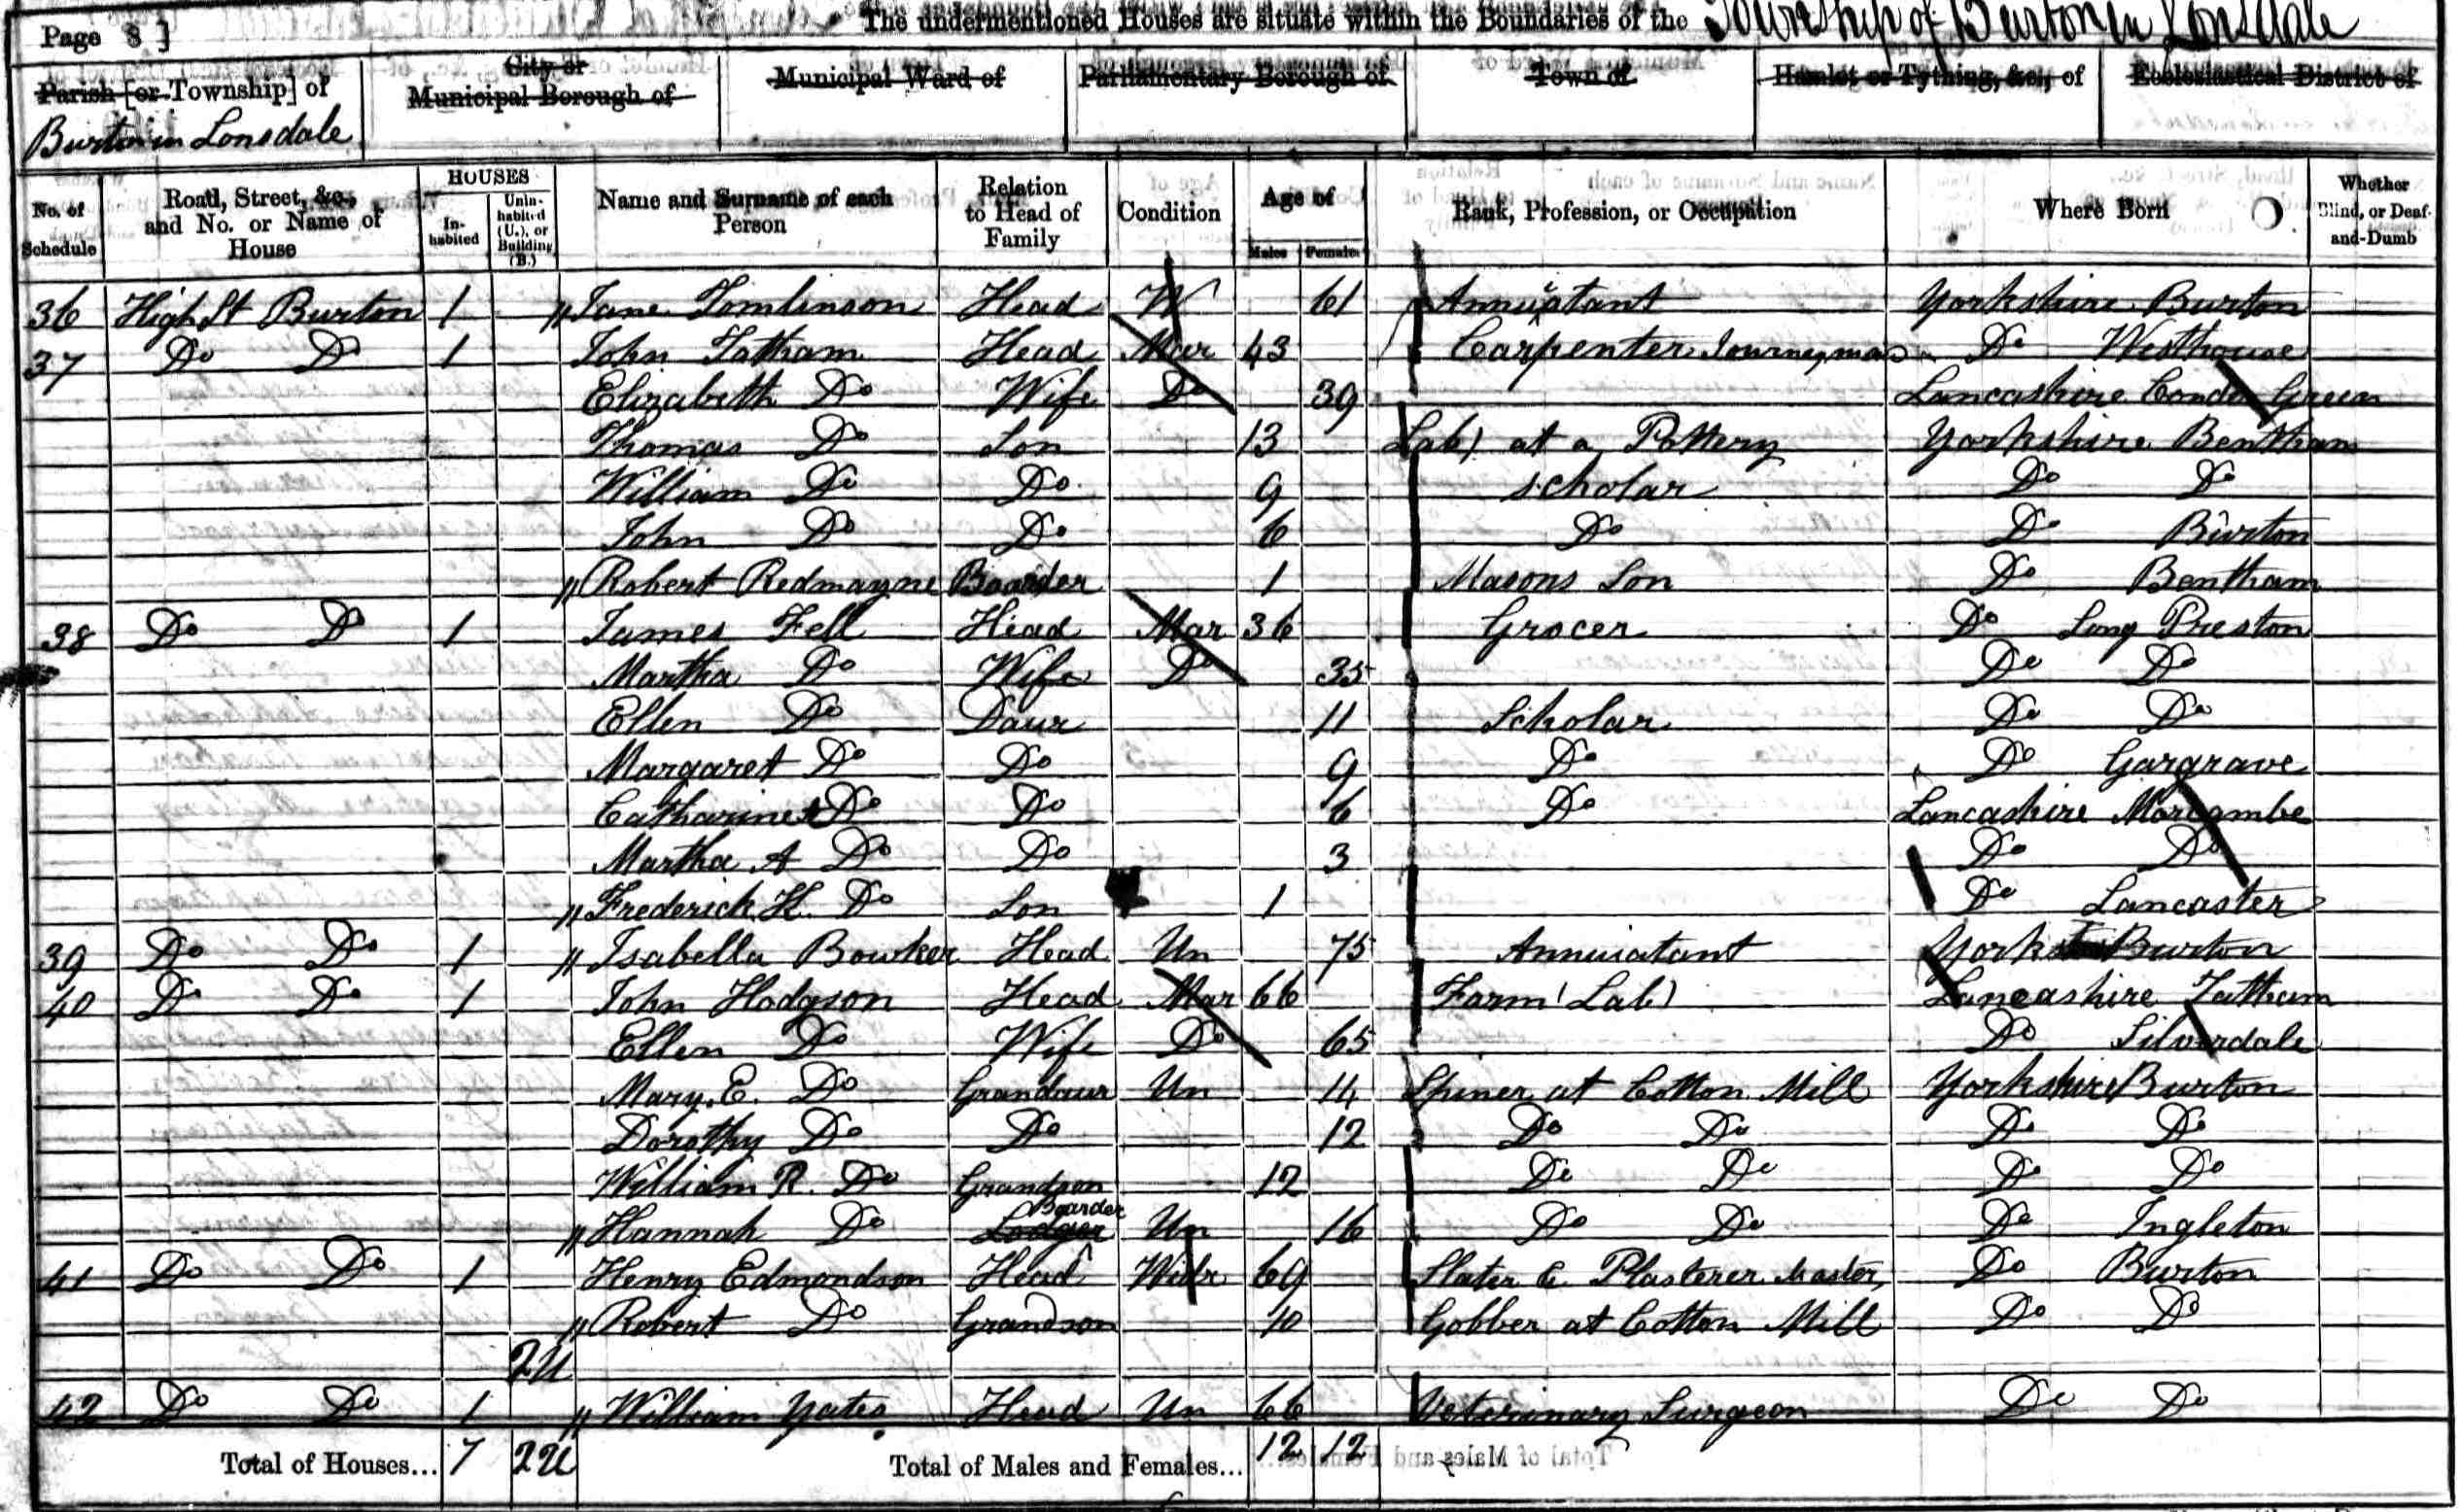 The undermentioned Houses are situate within the Boundaries of the Township of Burton in Lonsdale
Page 8]
Parish [or Township] of
Burton in Lonsdale
City or
Municipal Borough of
Municipal Ward of
Parliamentary Borough of
Town of
Hamlet or Tything, &c., of
Ecclesiastical District of
No. of Schedule
Road, Street, &c., and No. or Name of House
HOUSES
Inhabited
Uninhabited (U.), or Building (B.)
Name and Surname of each Person
Relation to Head of Family
Condition
Age of
Males
Females
Rank, Profession, or Occupation
Where Born
Whether Blind, or Deaf-and-Dumb
36 High St Burton 1 Jane Tomlinson Head W 61 Annuatant Yorkshire Burton
37 Do Do 1 John Tatham Head Mar 43 Carpenter Journeyman Do Westhouse
Elizabeth Do Wife Do 39 Lancashire Conder Green
Thomas Do Son 13 Lab) at a Pottery Yorkshire Bentham
William Do Do 9 Scholar Do Do
John Do Do 6 Do Do Burton
Robert Redmayne Boarder 1 Masons Son Do Bentham
38 Do Do 1 James Fell Head Mar 36 Grocer Do Long Preston
Martha Do Wife Do 35 Do Do
Ellen Do Daur 11 Scholar Do Do
Margaret Do Do 9 Do Do Gargrave
Catharine Do Do 6 Do Lancashire Morcambe
Martha A Do Do 3 Do Do
Frederick H. Do Son 1 Do Lancaster
39 Do Do 1 Isabella Bowker Head Un 75 Annuiatant Yorks Burton
40 Do Do 1 John Hodgson Head Mar 66 Farm Lab) Lancashire Tatham
Ellen Do Wife Do 65 Do Silverdale
Mary. E. Do Grandaur Un 14 Spiner at Cotton Mill Yorkshire Burton
Dorothy Do Do 12 Do Do Do Do
William R. Do Grandson 12 Do Do Do Do
Hannah Do Lodger Boarder Un 16 Do Do Do Ingleton
41 Do Do 1 Henry Edmondson Head Widr 69 Slater & Plasterer Master Do Burton
Robert Do Grandson 10 Gobber at Cotton Mill Do Do
2U
42 Do Do 1 William Yates Head Un 66 Veterinary Surgeon Do Do
Total of Houses... 7 2U Total of Males and Females... 12 12